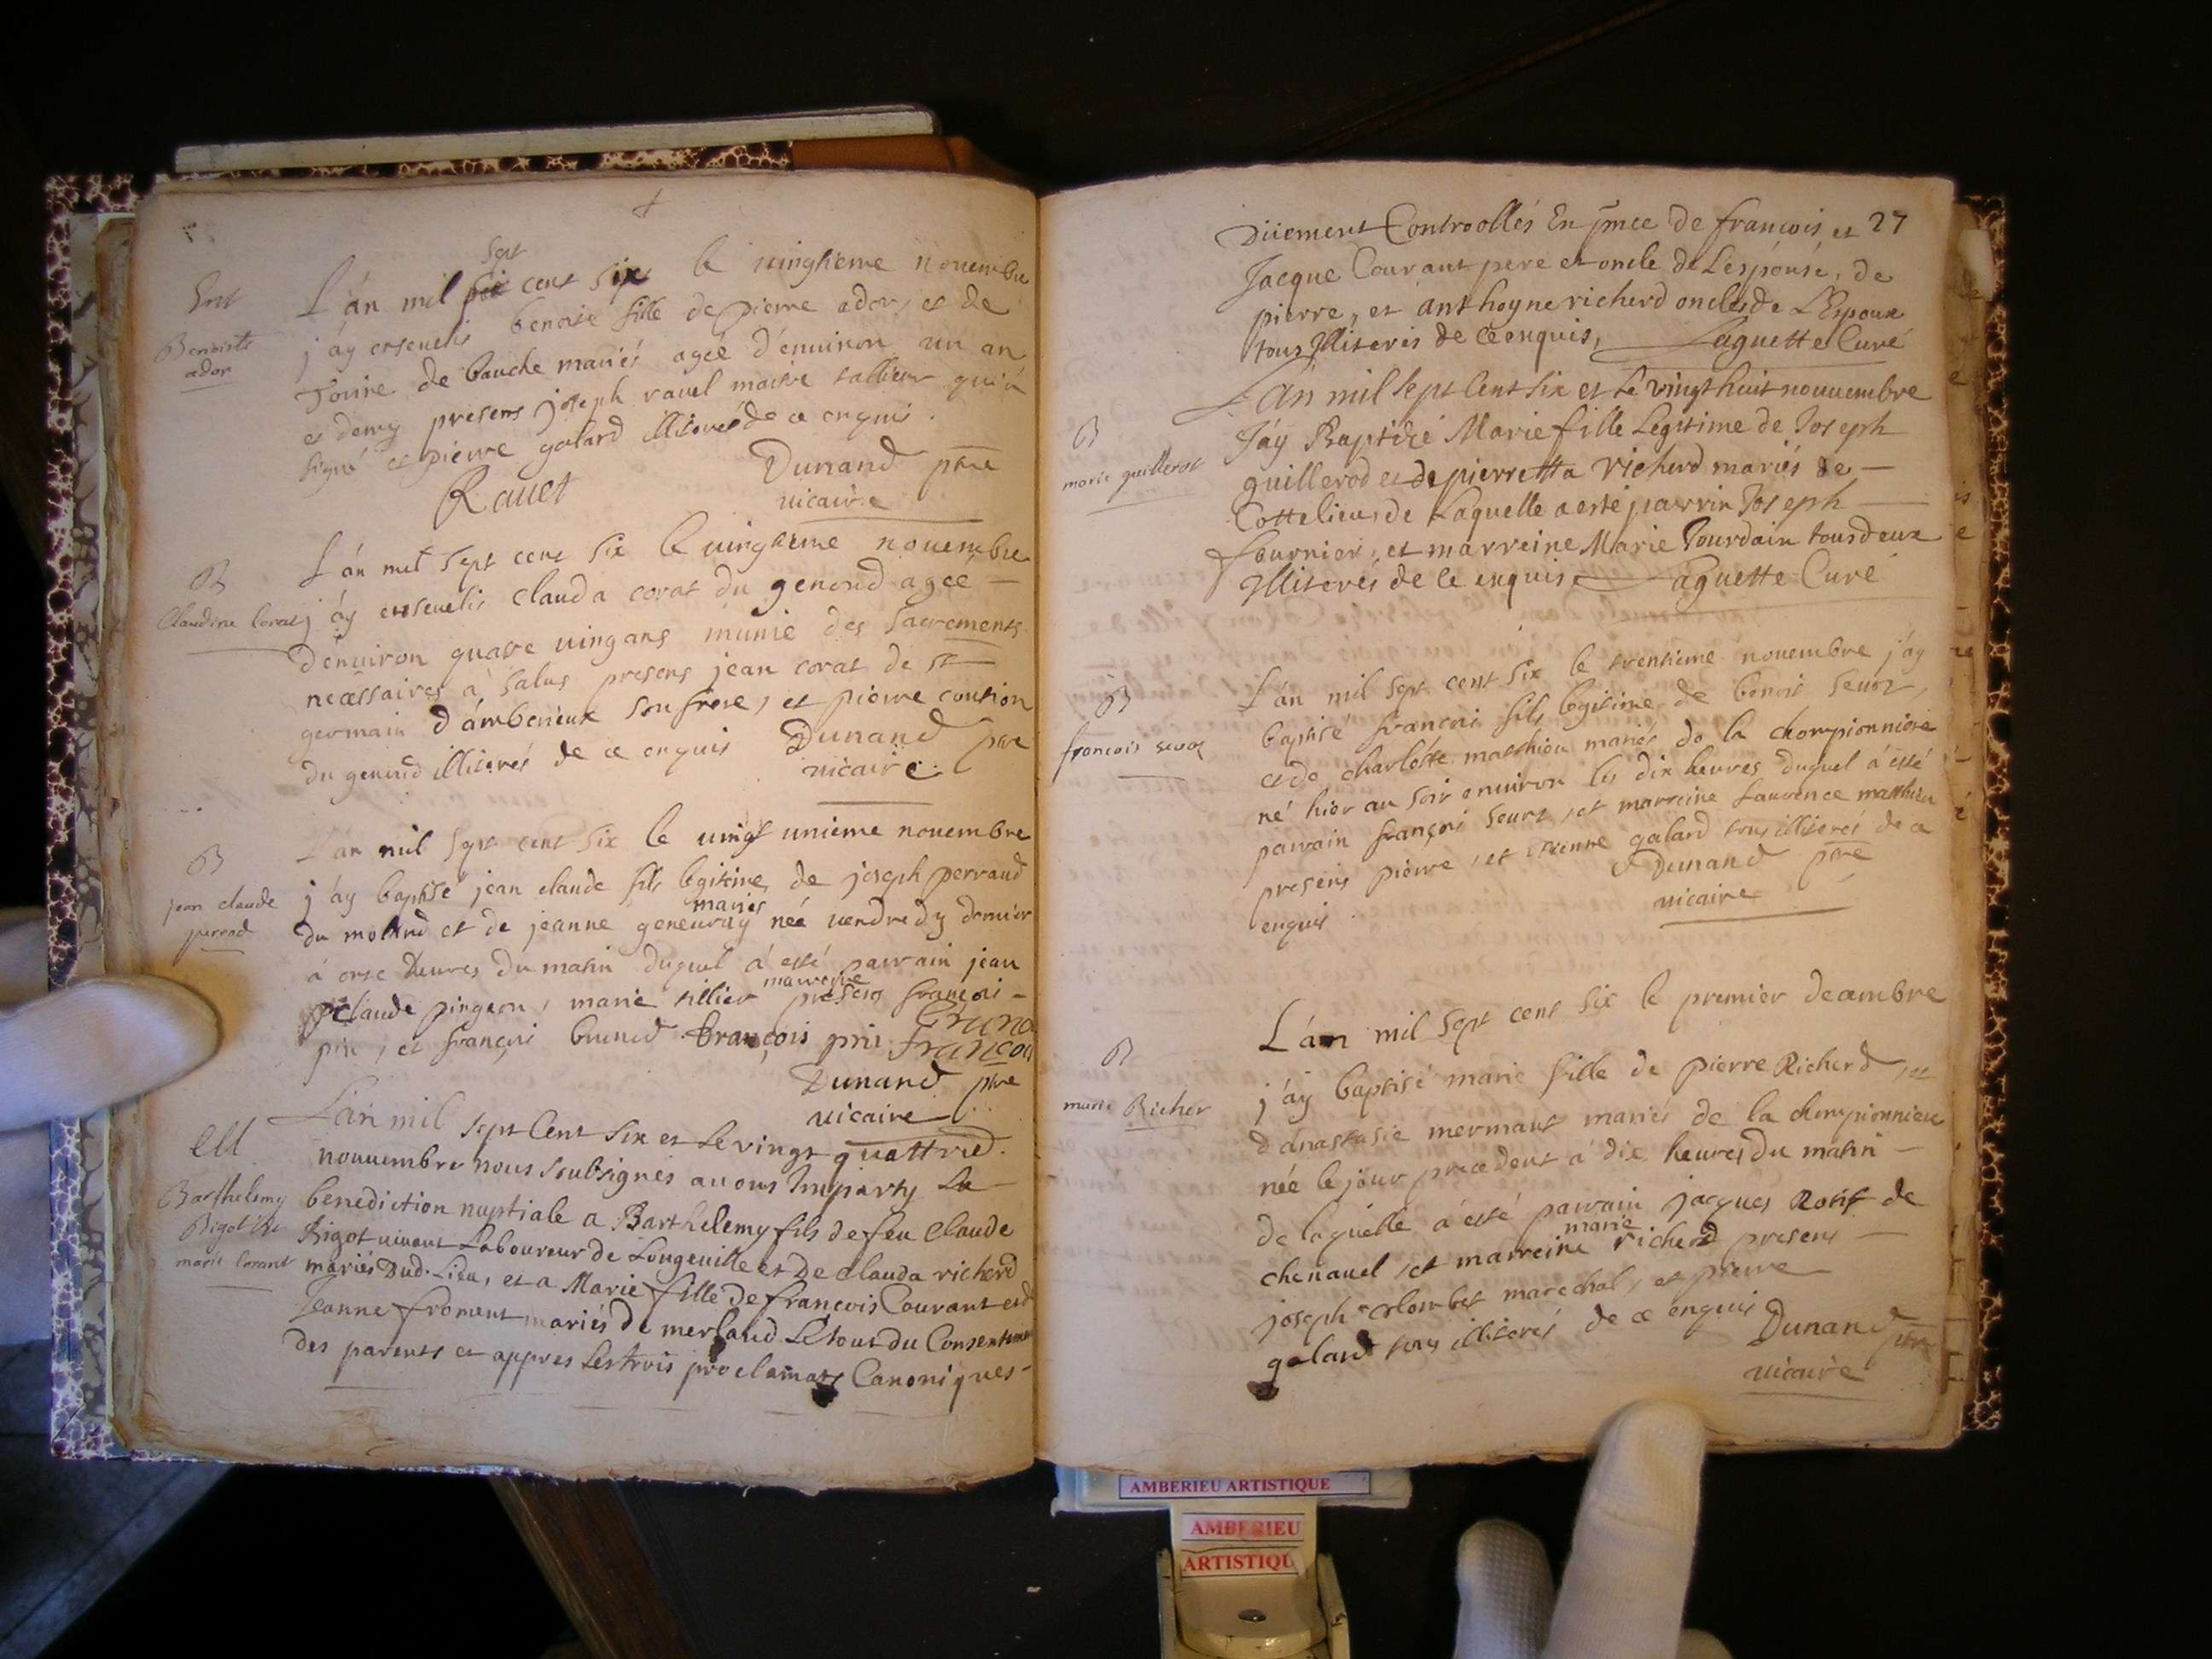 Ent
Benoiste
ador
sept
L'án mil six cent six le uingtieme nouembre
j'áy enseueli benoite fille de pierre ador, et de
de bauche mariés ageé d'enuiron un an
et demy presens joseph rauel maitre tallieur qui á
signé et pierre galard illiterés de ce enquis.
Rauet
Dunand ptre
uicaire
B
Claudine Corat
L'án mil sept cent six le uingtieme nouembre
j'áy enseuelis clauda corat du genoud ageé
d'enuiron quatre uing ans munie des sacrements
necessaires á salus presens jean corat de st
germain d'ámberieux son frere, et pierre coution
du genoud illiterés de ce enquis Dunand ptre
uicaire
B
jean claude
perrod
L'án mil sept cent six le uingt unieme nouembre
j'áy baptisé jean claude fils legitime de joseph perraud
mariés
du molard et de jeanne geneuray neé uendredy dernier
á onse heures du matin duquel á esté parrain jean
marreine
claude pingeon, marie tillier presens françois
pin, et françois brunod françois pin
Dunand ptre
uicaire
M
Barthelemy
Bigot et
marie Corant
L'an mil sept Cent six et le vingt quattrie.
nouuembre nous soubsignés auons Imparty La
benediction nuptiale a Barthelemy fils de feu Claude
Bigot uiuant Laboureur de Longeuille et de Clauda richerd
mariés Dud. Lieu, et a Marie fille de francois Courant et d
Jeanne froment mariés de merland. Le tout du Consentement
des parents et appres Les trois proclamats Canoniques
27
Düement Controollés En pnce de francois et
Jacque Courant pere et oncle de L'espouse, de
pierre, et anthoyne richerd oncles de L'Espoux
tous Illiterés de ce enquis, Laguette Curé
B
marie guillerot
L'án mil sept Cent six et Le vingt huit nouuembre
J'áy Baptizé Marie fille Legitime de Joseph
guillerod et de pierretta richerd mariés de
Cottelieu, de Laquelle a esté parrin Joseph
fournier, et marreine Marie Jourdain tous deux
Illiterés de Ce enquis, Laguette Curé
B
francois seuoz
L'án mil sept cent six le trentieme nouembre j'áy
baptisé françois fils legitime de benoit seuoz,
et de charlotte matthieu mariés de la championniere
né hier au soir enuiron les dix heures duquel á esté
parrain françois seuoz, et marreine laurence matthieu
presens pierre, et etienne galard tous illiterés de ce
enquis
Dunand ptre
uicaire
B
marie Richer
L'án mil sept cent six le premier decembre
j'áy baptisé marie fille de pierre Richerd, et
d'anastasie mermant mariés de la championniere
neé le jour precedent á dix heures du matin
de laquelle á esté parrain jacques Rotif de
marie
chenauel, et marreine richerd presens
joseph colombet marechal, et pierre
galard tous illiterés de ce enquis
Dunand ptre
uicaire
AMBERIEU ARTISTIQUE
AMBERIEU
ARTISTIQU